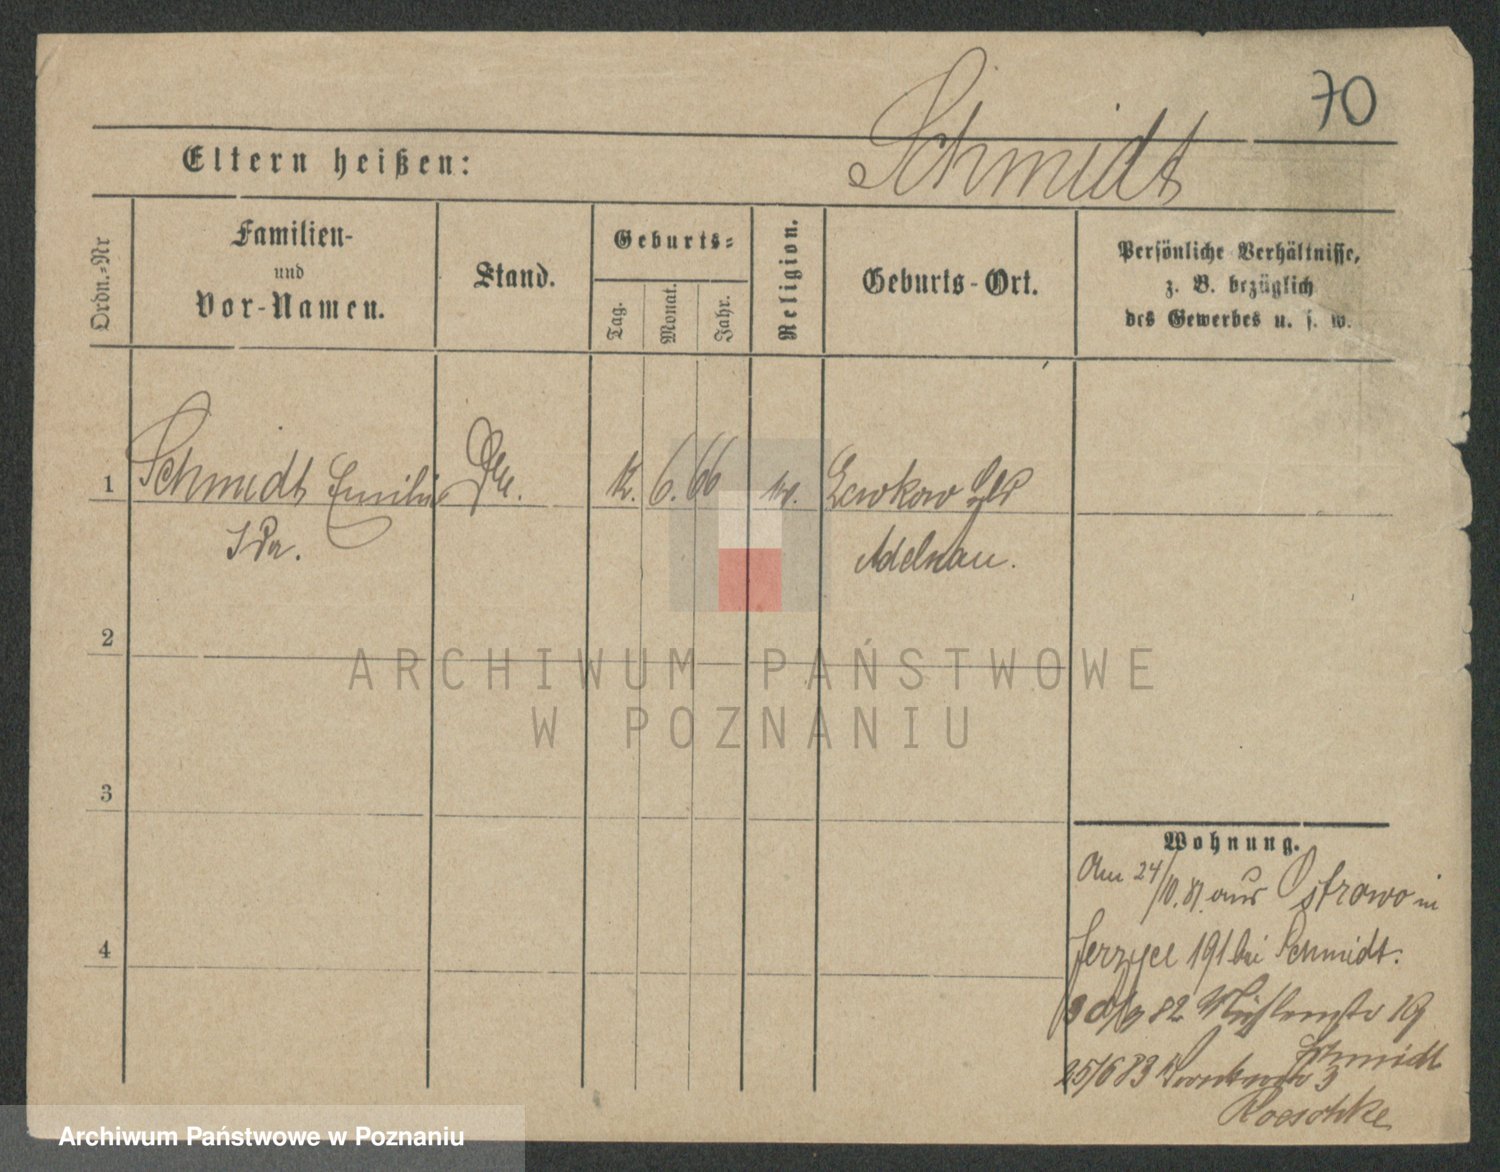 70
Schmidt
Eltern heißen:
Ordn.-Nr
Familien-
und
Vor-Namen.
Stand.
Geburts-
Tag.
Monat.
Jahr.
Religion.
Geburts-Ort.
Persönliche Verhältnisse,
z. B. bezüglich
des Gewerbes u. s. w.
1
Schmidt Emilie
Ida.
12. 6. 66
Lewkow
Adelnau.
2
3
4
Wohnung.
Am 24/10.81. aus Ostrowo in
Jerzyce 191 bei Schmidt.
82 Mühlenstr 19
Schmidt
25/6 83 3
Roeschke
ARCHIWUM PAŃSTWOWE
W POZNANIU
Archiwum Państwowe w Poznaniu